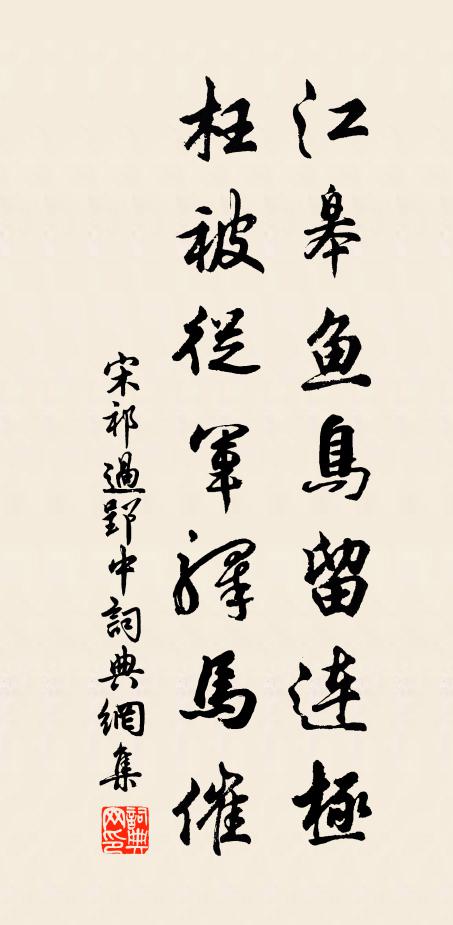 江皋鱼鳥留连極
枉被從軍驛馬催
宋祁過郢中詞典網集
詞典网印